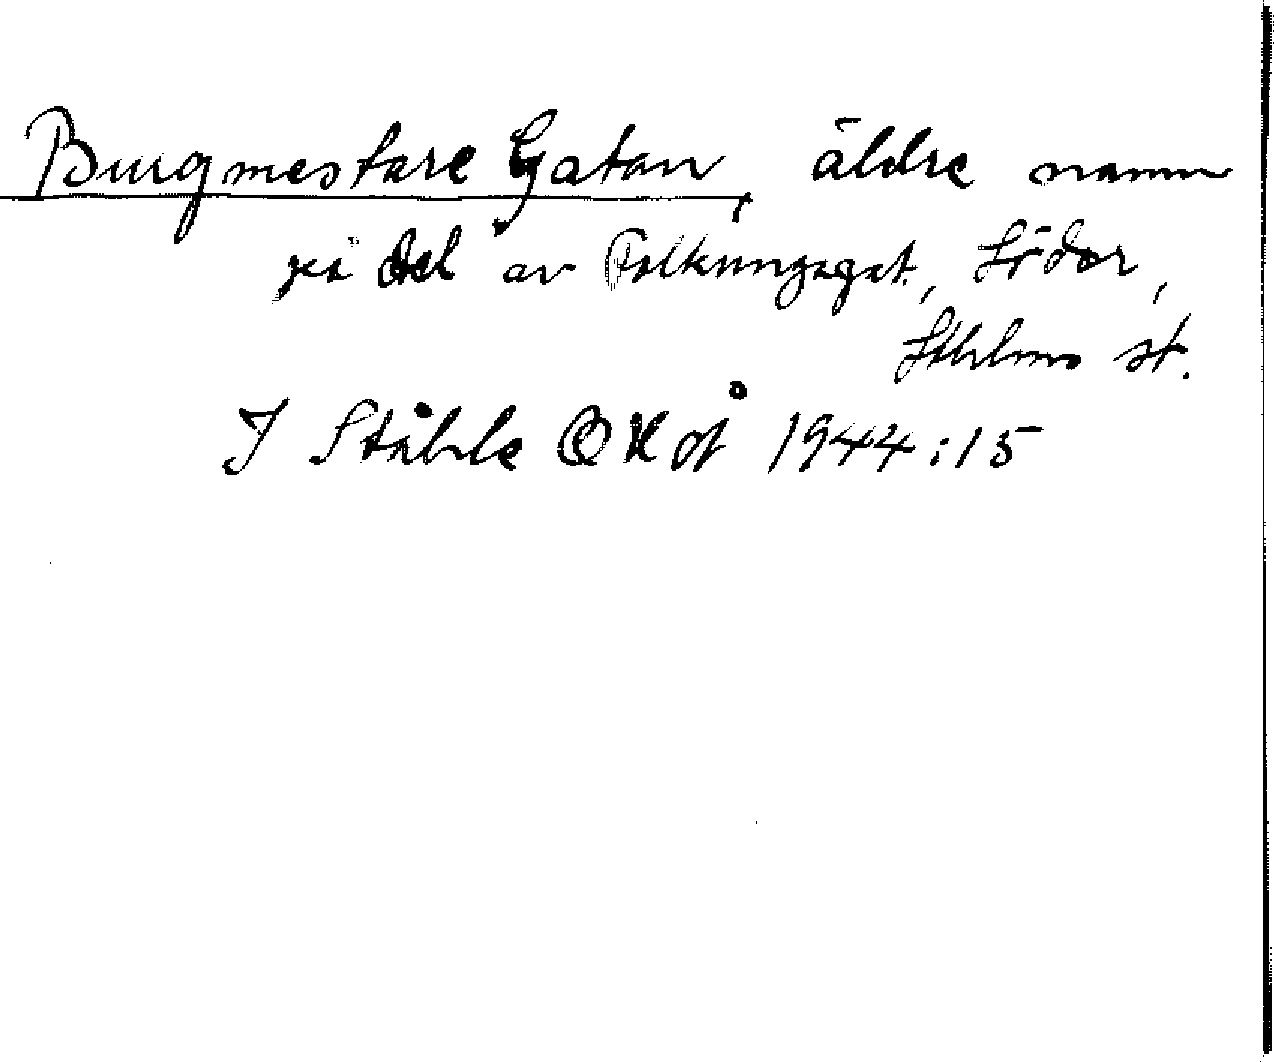 Burgmestare Gatan, äldre namn
på del av Folkungagat., Söder,
Sthlms st.
I Ståhle OKoÅ 1944:15